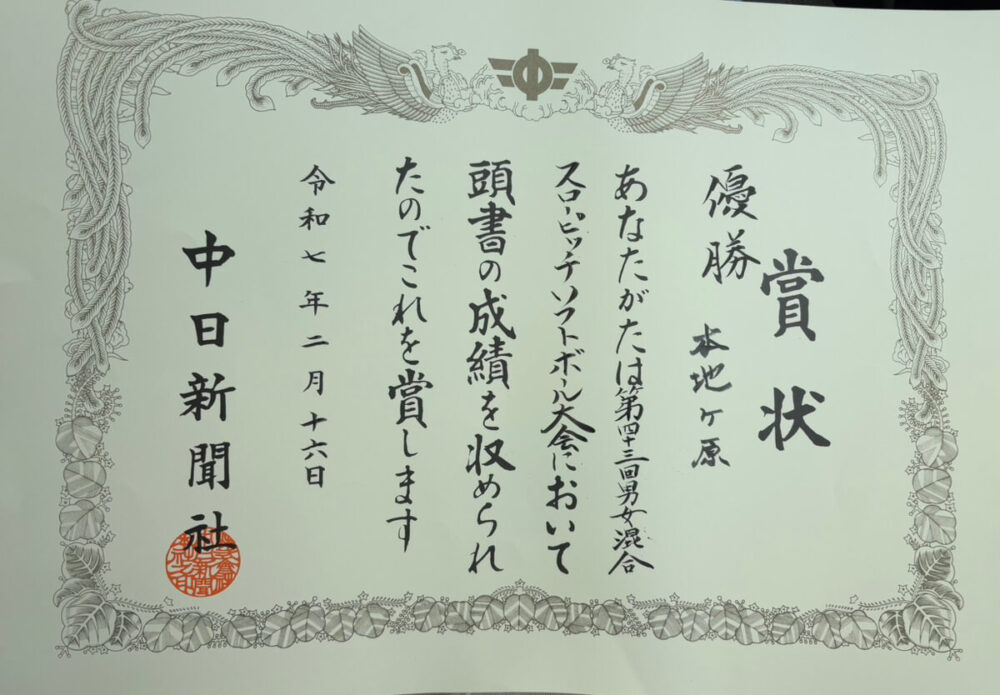 賞状
優勝
本地ヶ原
あなたがたは第四十三回男女混合
スローピッチソフトボール大会において
頭書の成績を収められ
たのでこれを賞します
令和七年二月十六日
中日新聞社